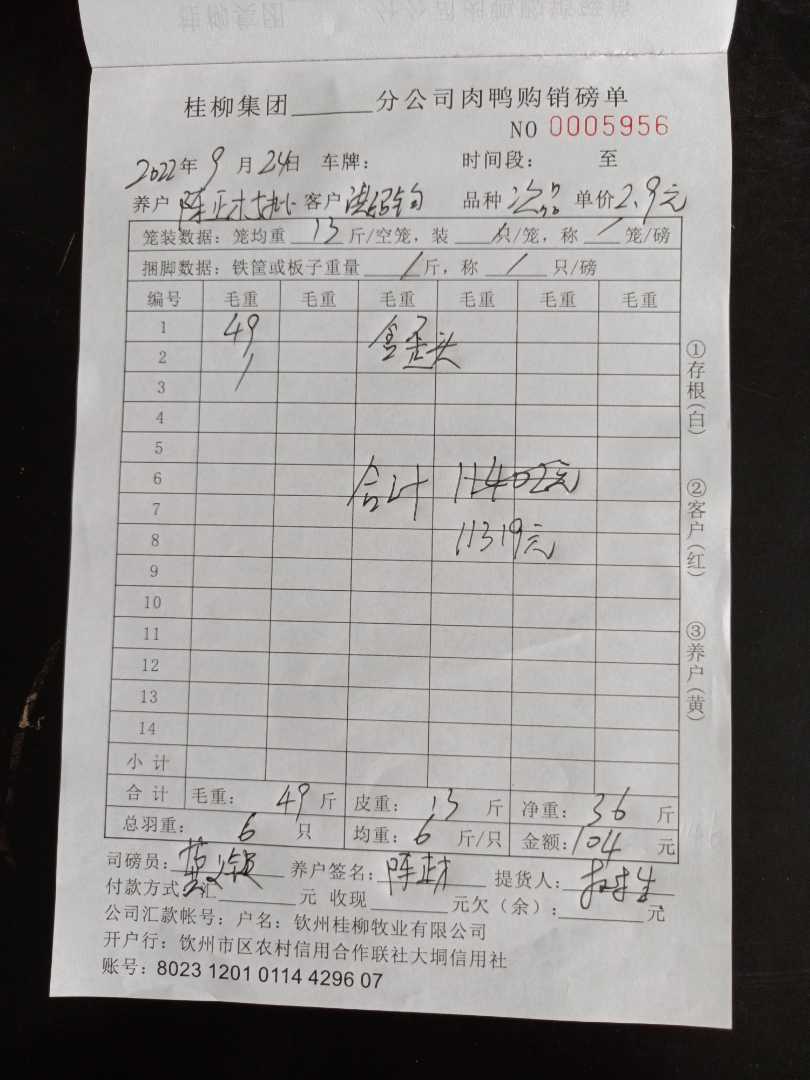 桂柳集团______分公司肉鸭购销磅单
NO 0005956
2022年 9 月 24日 车牌: 时间段: 至
养户 陈正 客户 品种 次品 单价 2.9元
笼装数据: 笼均重 13 斤/空笼, 装 / 只/笼, 称 / 笼/磅
捆脚数据: 铁筐或板子重量 / 斤, 称 / 只/磅
编号 毛重 毛重 毛重 毛重 毛重 毛重
1 49 含歪头
2 /
3
4
5
6 合计 11402元
7
8 11319元
9
10
11
12
13
14
小计
合计 毛重: 49 斤 皮重: 13 斤 净重: 36 斤
总羽重: 6 只 均重: 6 斤/只 金额: 104 元
司磅员: 养户签名: 陈正才 提货人:
付款方式: 汇______元 收现______元欠(余):______元
公司汇款帐号: 户名: 钦州桂柳牧业有限公司
开户行: 钦州市区农村信用合作联社大垌信用社
账号: 8023 1201 0114 4296 07
①存根(白)
②客户(红)
③养户(黄)